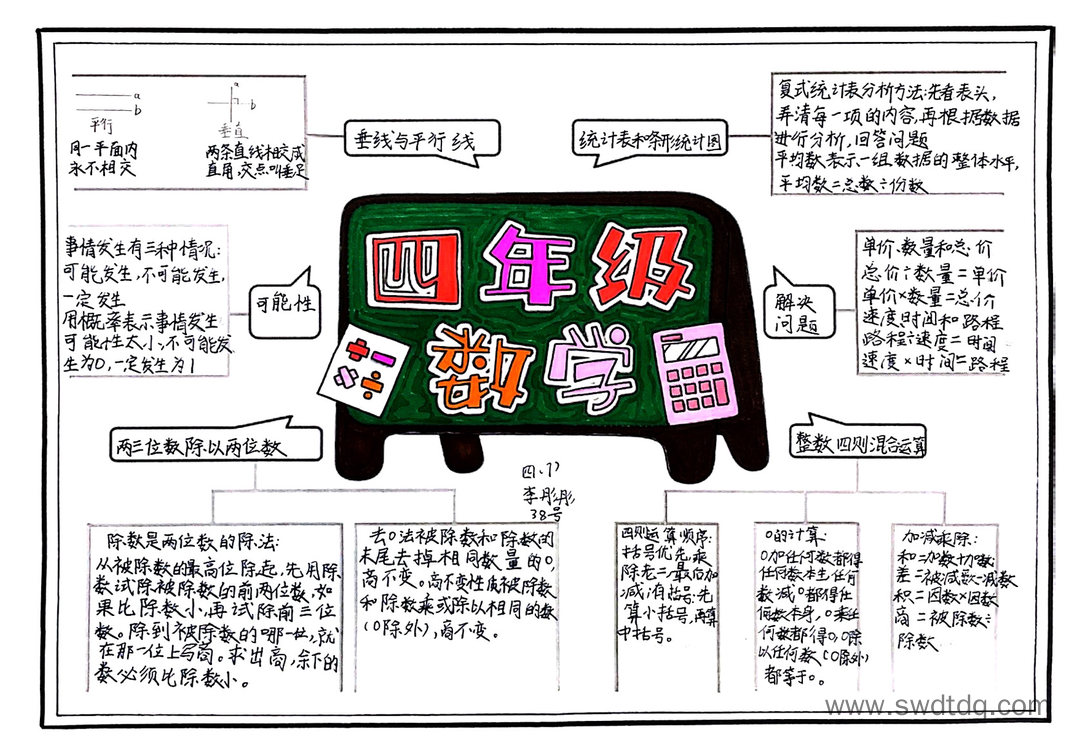 四年级
数学
a
b
平行
同一平面内
永不相交
a
b
垂直
两条直线相交成
直角,交点叫垂足
垂线与平行线
统计表和条形统计图
复式统计表分析方法:先看表头,
弄清每一项的内容,再根据数据
进行分析,回答问题
平均数表示一组数据的整体水平,
平均数=总数÷份数
事情发生有三种情况:
可能发生,不可能发生,
一定发生
用概率表示事情发生
可能性大小,不可能发
生为0,一定发生为1
可能性
解决
问题
单价、数量和总价
总价÷数量=单价
单价×数量=总价
速度时间和路程
路程÷速度=时间
速度×时间=路程
两三位数除以两位数
整数四则混合运算
四、1)
李彤彤
38号
除数是两位数的除法:
从被除数的最高位除起,先用除
数试除被除数的前两位数,如
果比除数小,再试除前三位
数。除到被除数的哪一位,就
在那一位上写商。求出商,余下的
数必须比除数小。
去0法被除数和除数的
末尾去掉相同数量的0,
商不变。商不变性质被除数
和除数乘或除以相同的数
(0除外),商不变。
四则运算顺序:
括号优先,乘
除老二,最后加
减,有括号:先
算小括号,再算
中括号。
0的计算:
0加任何数都得
任何数本生,任何
数减0都得任
何数本身,0乘任
何数都得0,0除
以任何数(0除外)
都等于0。
加减乘除:
和=加数+加数
差=被减数-减数
积=因数×因数
商=被除数÷
除数
www.swdtdq.com